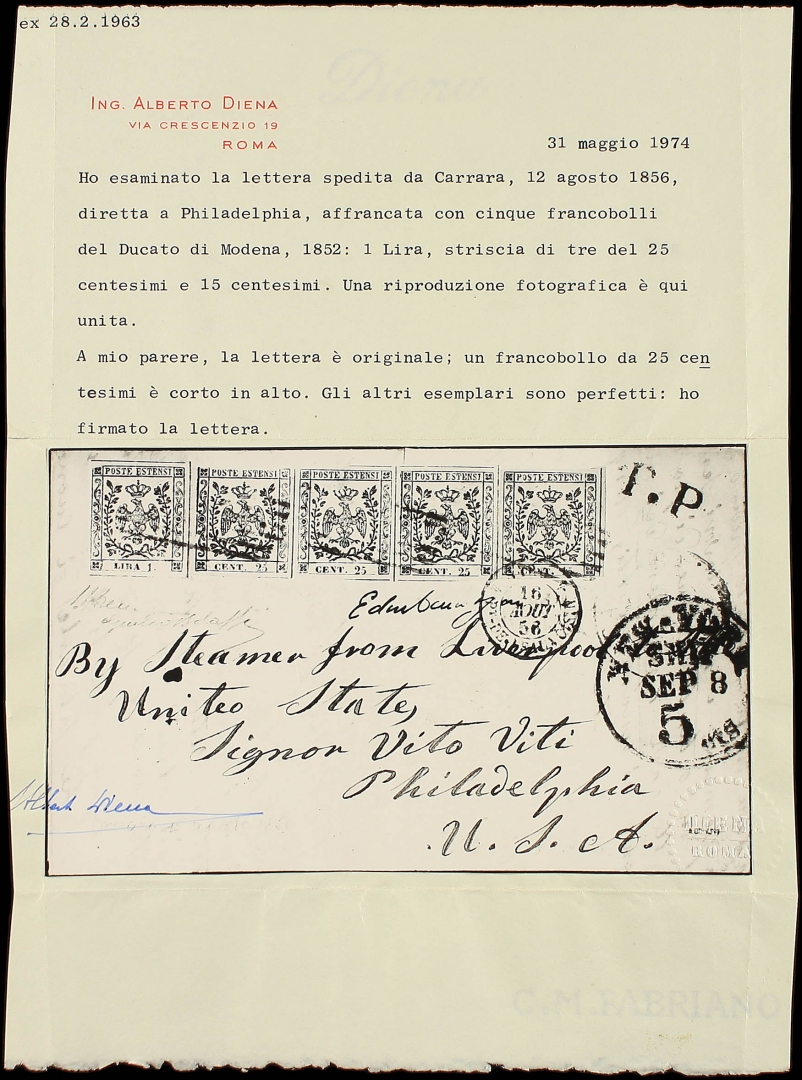 ex 28.2.1963
ING. ALBERTO DIENA
VIA CRESCENZIO 19
ROMA
31 maggio 1974
Ho esaminato la lettera spedita da Carrara, 12 agosto 1856,
diretta a Philadelphia, affrancata con cinque francobolli
del Ducato di Modena, 1852: 1 Lira, striscia di tre del 25
centesimi e 15 centesimi. Una riproduzione fotografica è qui
unita.
A mio parere, la lettera è originale; un francobollo da 25 cen
tesimi è corto in alto. Gli altri esemplari sono perfetti: ho
firmato la lettera.
POSTE ESTENSI POSTE ESTENSI POSTE ESTENSI POSTE ESTENSI POSTE ESTENSI
LIRA 1. CENT. 25 CENT. 25 CENT. 25 CENT.
T.P
16
AOUT
56
By Steamer from Liverpool
SHIP
SEP 8
5
United States
Signor Vito Viti
Philadelphia
U. S. A.
Alberto Diena
DIENA
ROMA
C.M.FABRIANO